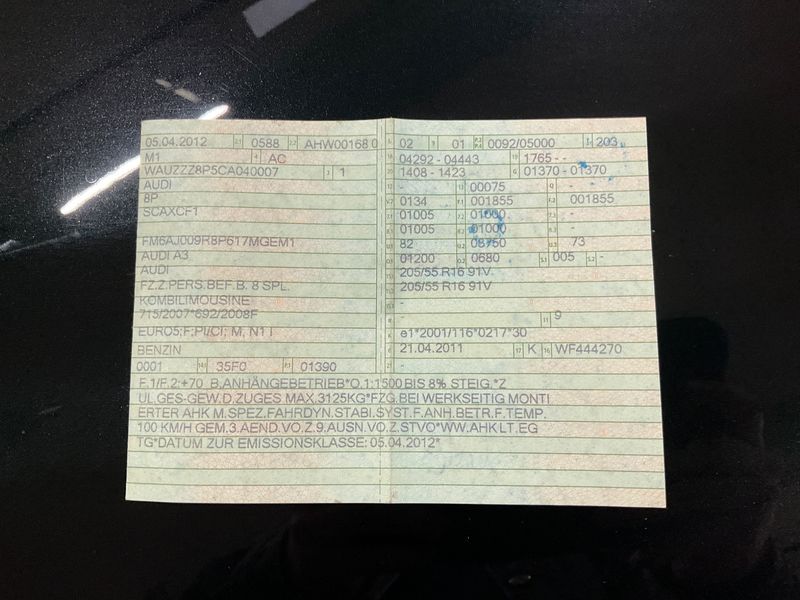 05.04.2012 0588 AHW00168 0
M1 AC
WAUZZZ8P5CA040007 3 1
AUDI
8P
SCAXCF1
FM6AJ009R8P617MGEM1
AUDI A3
AUDI
FZ.Z.PERS.BEF.B. 8 SPL.
KOMBILIMOUSINE
715/2007*692/2008F
EURO5;F;PI/CI; M, N1 I
BENZIN
0001 35F0 01390
02 01 0092/05000 203
04292 - 04443 1765 - -
1408 - 1423 - G 01370 - 01370
- 00075 -
0134 001855 001855
01005 01000 -
01005 01000 -
82 03750 73
01200 0680 005 -
205/55 R16 91V
205/55 R16 91V
-
- 11 9
e1*2001/116*0217*30
21.04.2011 17 K 16 WF444270
-
F.1/F.2:+70 B.ANHÄNGEBETRIEB*O.1:1500 BIS 8% STEIG.*Z
UL.GES-GEW.D.ZUGES MAX.3125KG*FZG.BEI WERKSEITIG MONTI
ERTER AHK M.SPEZ.FAHRDYN.STABI.SYST.F.ANH.BETR.F.TEMP.
100 KM/H GEM.3.AEND.VO.Z.9.AUSN.VO.Z.STVO*WW.AHK LT.EG
TG*DATUM ZUR EMISSIONSKLASSE: 05.04.2012*